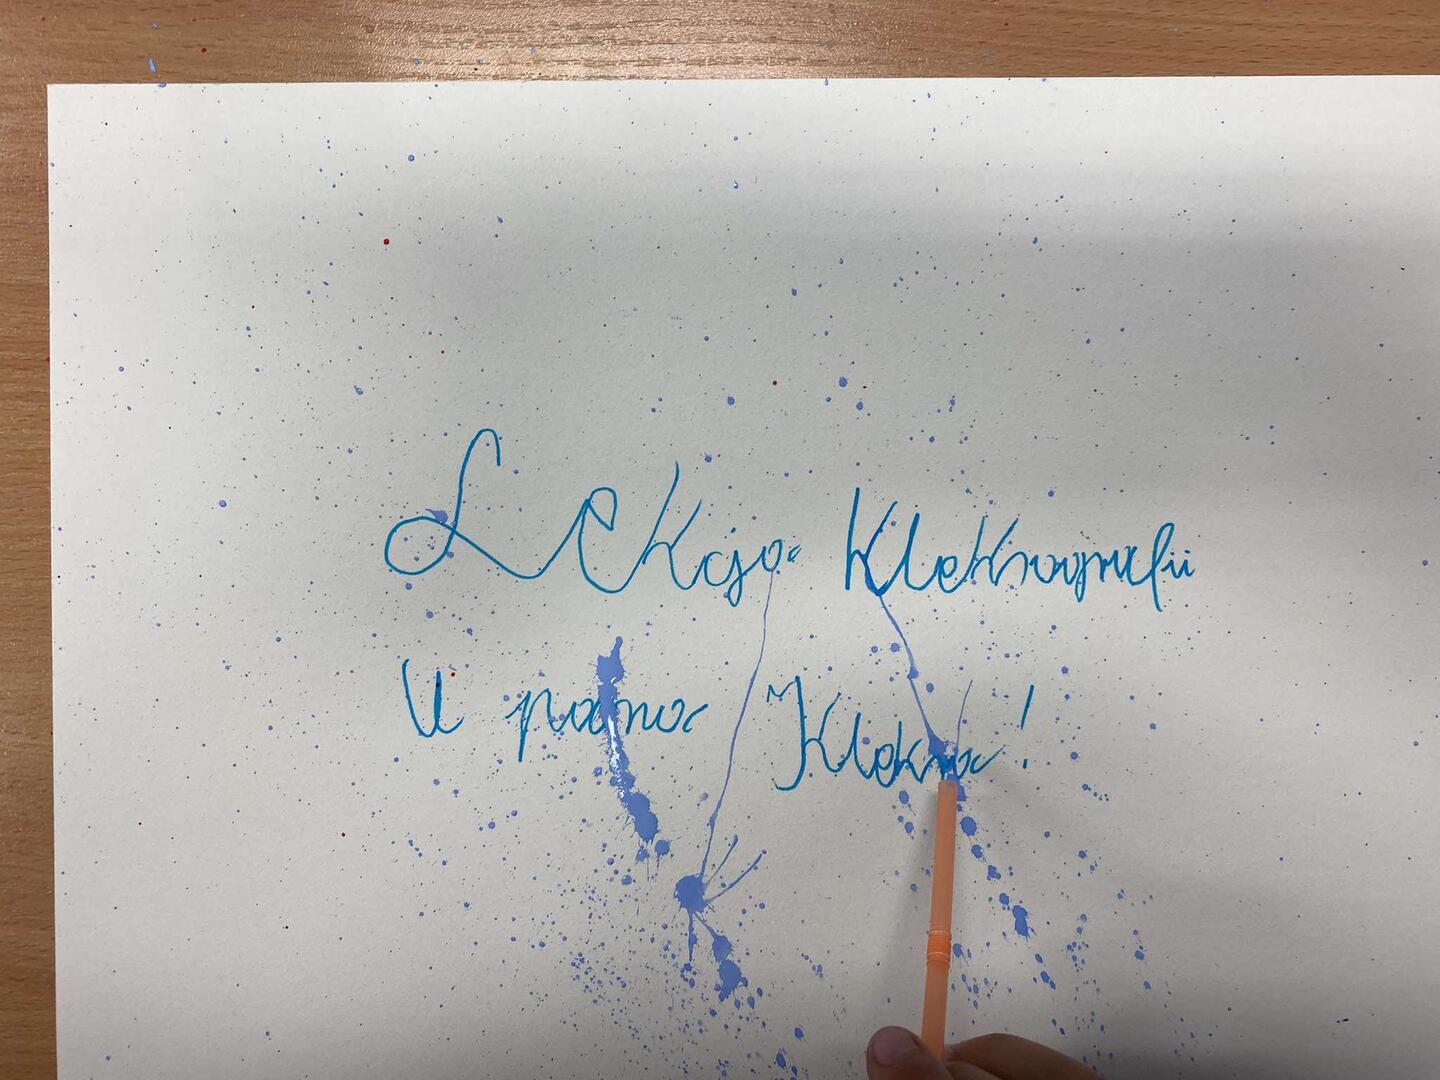 Lekcja Kleksografii
U pana Kleksa!